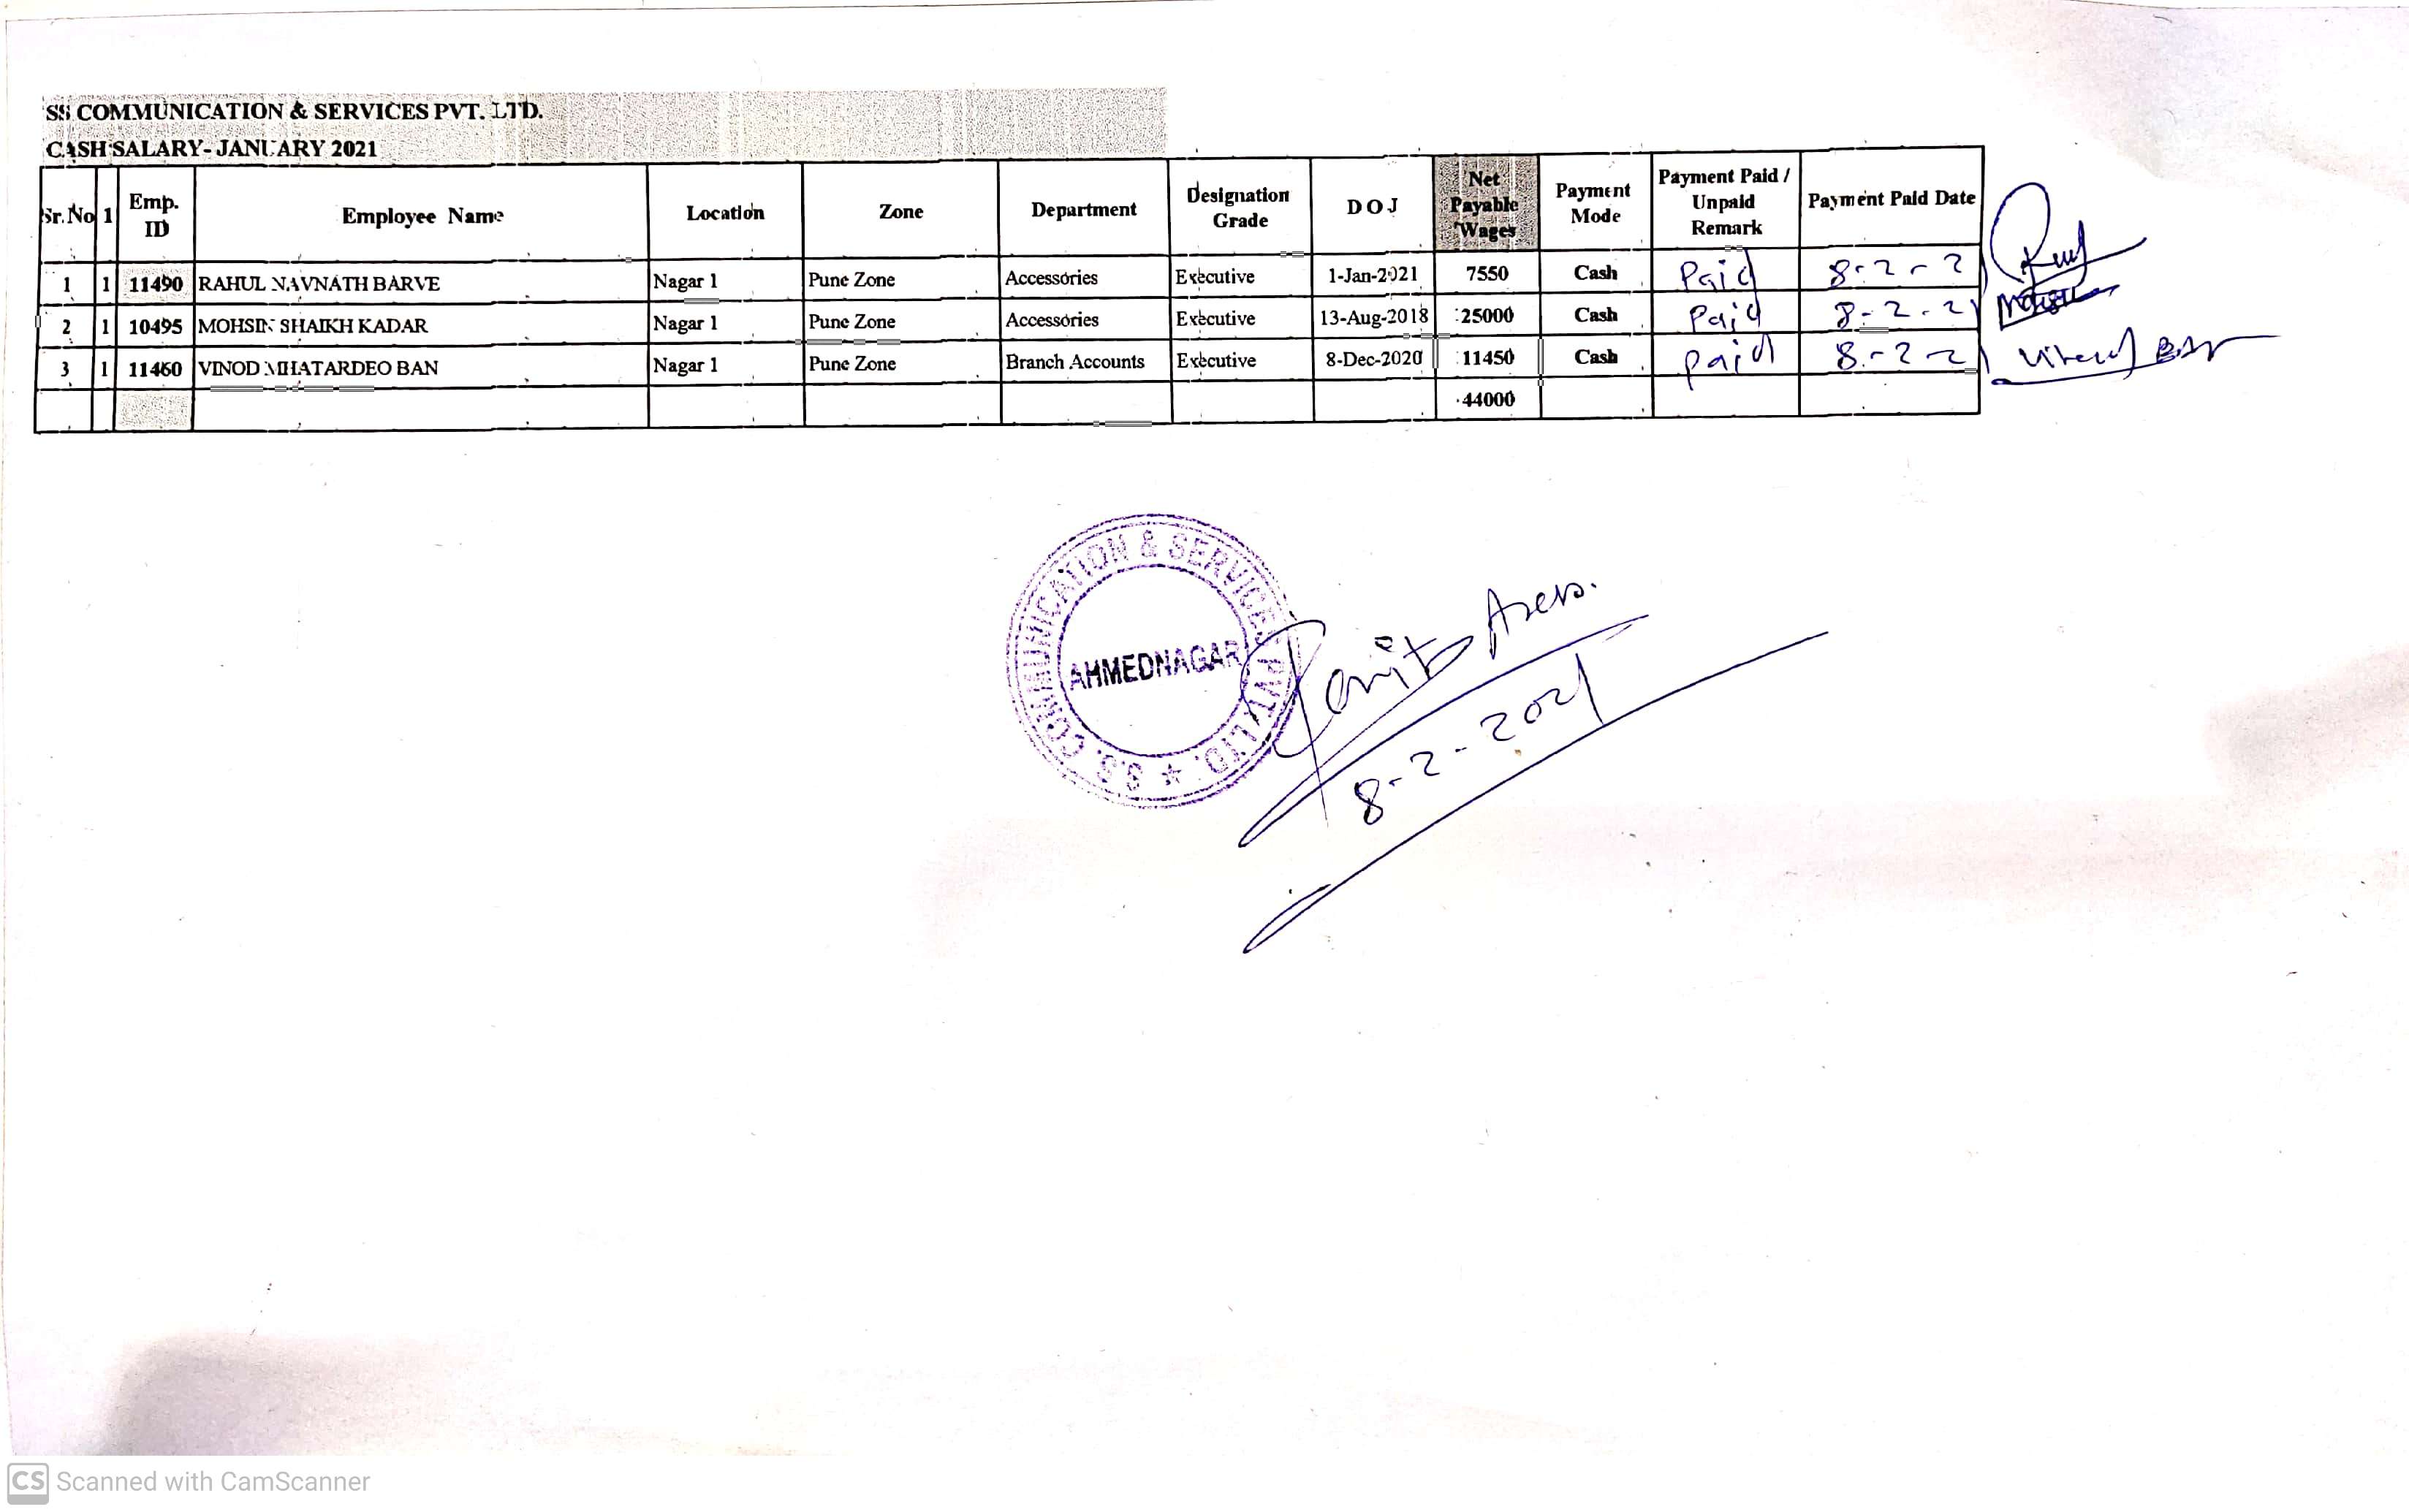 SS COMMUNICATION & SERVICES PVT. LTD.
CASH SALARY- JANUARY 2021
Sr. No 1 Emp. ID Employee Name Location Zone Department Designation Grade D O J Net Payable Wages Payment Mode Payment Paid / Unpaid Remark Payment Paid Date
1 1 11490 RAHUL NAVNATH BARVE Nagar 1 Pune Zone Accessories Executive 1-Jan-2021 7550 Cash Paid 8-2-21
2 1 10495 MOHSIN SHAIKH KADAR Nagar 1 Pune Zone Accessories Executive 13-Aug-2018 25000 Cash Paid 8-2-21
3 1 11460 VINOD MHATARDEO BAN Nagar 1 Pune Zone Branch Accounts Executive 8-Dec-2020 11450 Cash Paid 8-2-21
44000
S.S. COMMUNICATION & SERVICES PVT. LTD. ★
AHMEDNAGAR
8-2-2021
CS Scanned with CamScanner